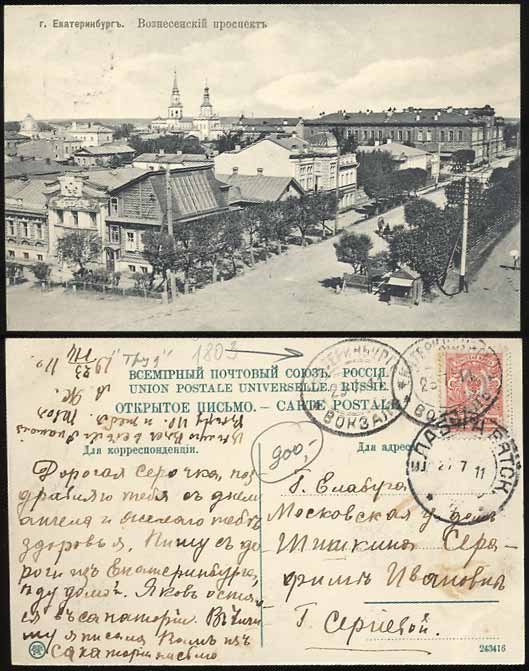 г. Екатеринбургъ. Вознесенскій проспектъ
1803
ВСЕМІРНЫЙ ПОЧТОВЫЙ СОЮЗЪ. РОССІЯ.
UNION POSTALE UNIVERSELLE. RUSSIE.
ОТКРЫТОЕ ПИСЬМО. — CARTE POSTALE
Для корреспонденціи.
Для адреса
ЕКАТЕРИНБУРГЪ
ВОКЗАЛЪ
ВОКЗАЛЪ
ЕЛАБУГА ВЯТСК.
27 7 11
900,-
Дорогая Серочка, поз
дравляю тебя съ днем
ангела и желаю тебѣ
здоровья. Пишу съ до
роги изъ Екатеринбурга,
иду домой. Яковъ остал
ся въ санаторіи.
я писала Вамъ изъ
санаторіи письмо
Г. Елабуга
Московская у. домъ
Шишкина Сера-
фимѣ Ивановнѣ
Г. Сергіевой.
243416